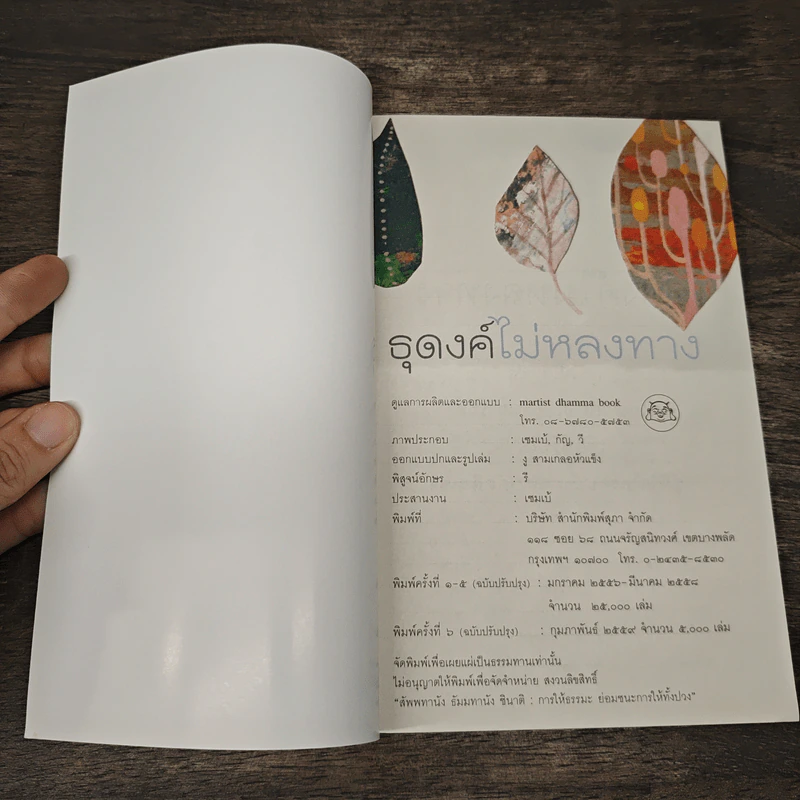 ธุดงค์ไม่หลงทาง
ดูแลการผลิตและออกแบบ : martist dhamma book
โทร. ๐๘-๖๗๘๐-๕๗๕๓
ภาพประกอบ : เซมเบ้, กัญ, วี
ออกแบบปกและรูปเล่ม : งู สามเกลอหัวแข็ง
พิสูจน์อักษร : รี
ประสานงาน : เซมเบ้
พิมพ์ที่ : บริษัท สำนักพิมพ์สุภา จำกัด
๑๑๘ ซอย ๖๘ ถนนจรัญสนิทวงศ์ เขตบางพลัด
กรุงเทพฯ ๑๐๗๐๐ โทร. ๐-๒๔๓๕-๘๕๓๐
พิมพ์ครั้งที่ ๑-๕ (ฉบับปรับปรุง) : มกราคม ๒๕๕๖-มีนาคม ๒๕๕๘
จำนวน ๒๕,๐๐๐ เล่ม
พิมพ์ครั้งที่ ๖ (ฉบับปรับปรุง) : กุมภาพันธ์ ๒๕๕๙ จำนวน ๕,๐๐๐ เล่ม
จัดพิมพ์เพื่อเผยแผ่เป็นธรรมทานเท่านั้น
ไม่อนุญาตให้พิมพ์เพื่อจัดจำหน่าย สงวนลิขสิทธิ์
"สัพพทานัง ธัมมทานัง ชินาติ : การให้ธรรมะ ย่อมชนะการให้ทั้งปวง"